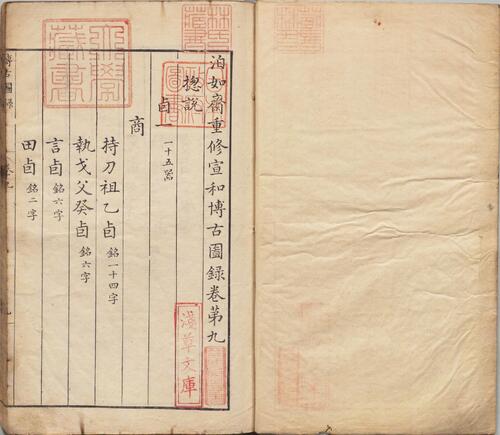 泊如齋重修宣和博古圖録卷第九
總説
卣一 一十五器
商
持刀祖乙卣 銘一十四字
執戈父癸卣 銘六字
言卣 銘六字
田卣 銘二字
淺草文庫